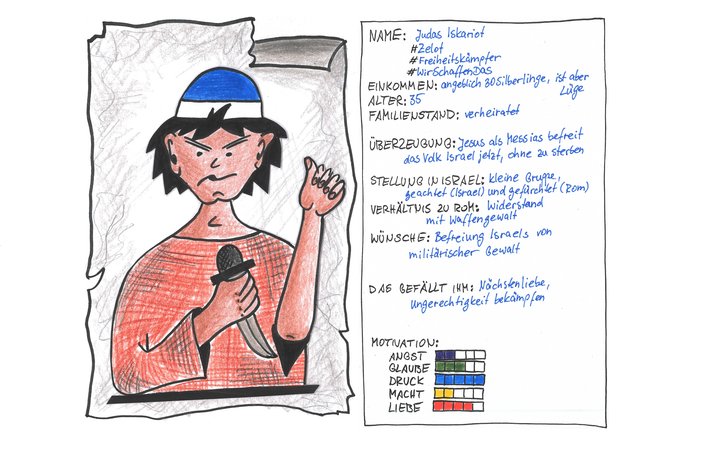 NAME: Judas Iskariot
#Zelot
#Freiheitskämpfer
#WirSchaffenDas
EINKOMMEN: angeblich 30 Silberlinge, ist aber
Lüge
ALTER: 35
FAMILIENSTAND: verheiratet
ÜBERZEUGUNG: Jesus als Messias befreit
das Volk Israel jetzt, ohne zu sterben
STELLUNG IN ISRAEL: kleine Gruppe,
geachtet (Israel) und gefürchtet (Rom)
VERHÄLTNIS ZU ROM: Widerstand
mit Waffengewalt
WÜNSCHE: Befreiung Israels von
militärischer Gewalt
DAS GEFÄLLT IHM: Nächstenliebe,
Ungerechtigkeit bekämpfen
MOTIVATION:
ANGST
GLAUBE
DRUCK
MACHT
LIEBE